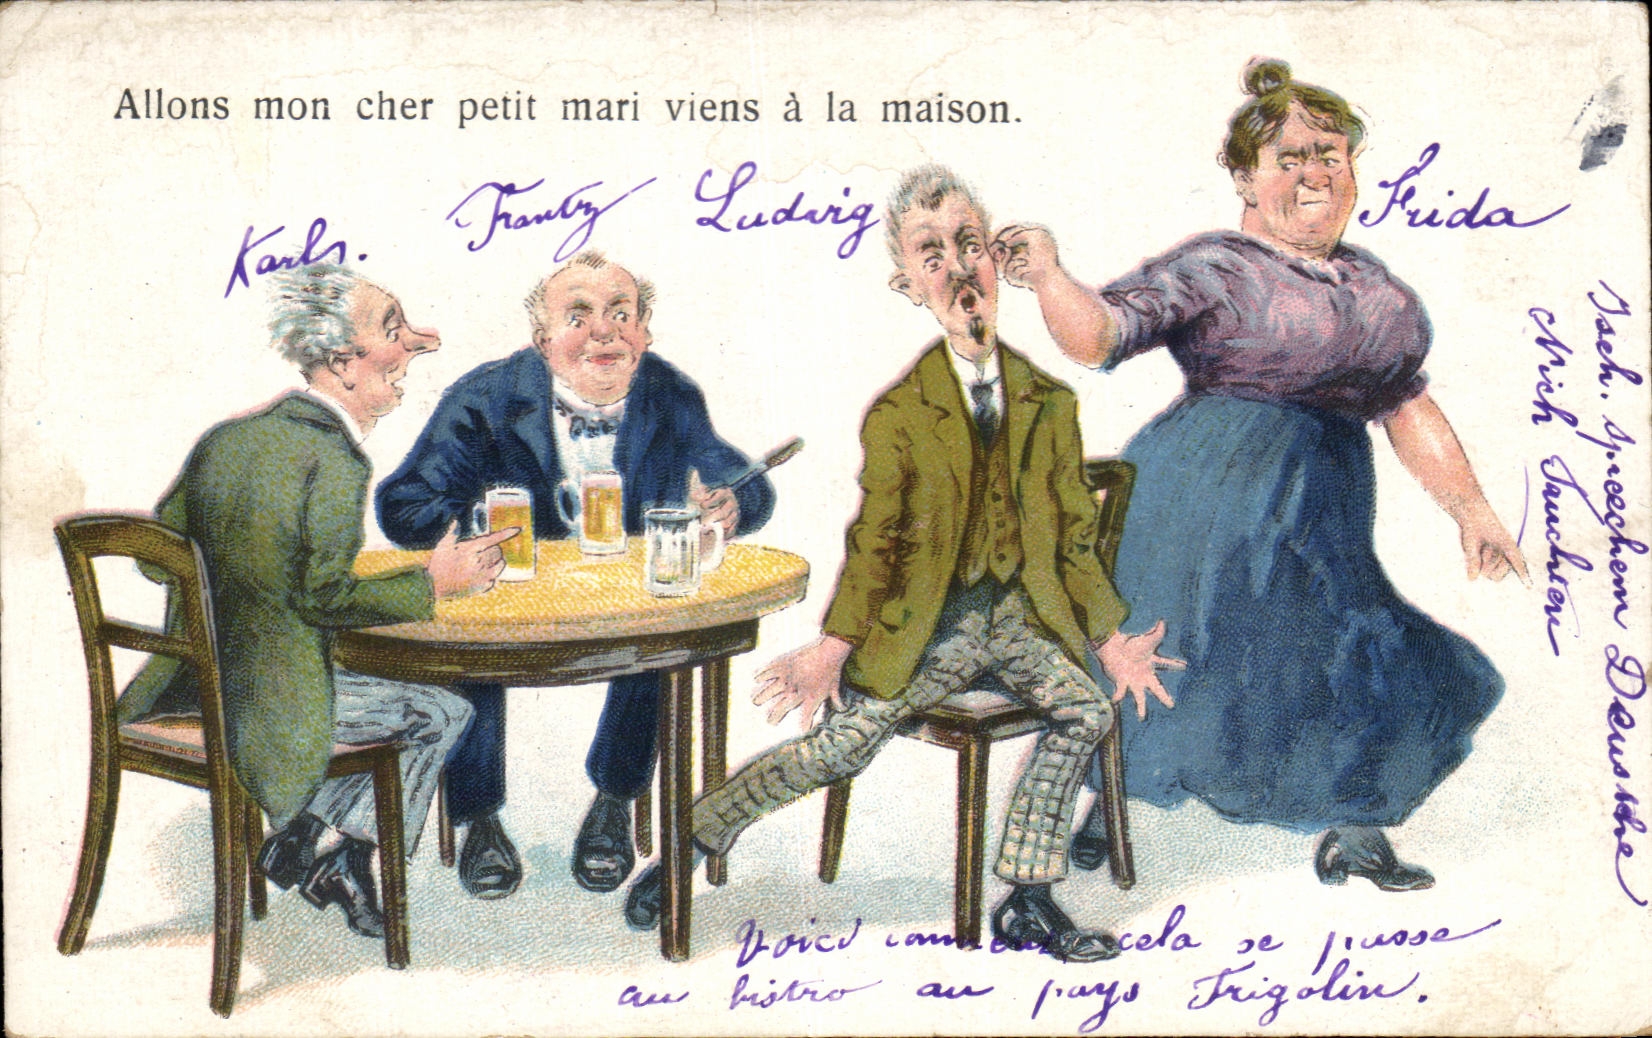 Allons mon cher petit mari viens à la maison.
Karls.
Frantz
Ludwig
Frida
Isch. spreechem Deustche
Nich Tauchten
Voici comment cela se passe
au bistro au pays Frigolin.